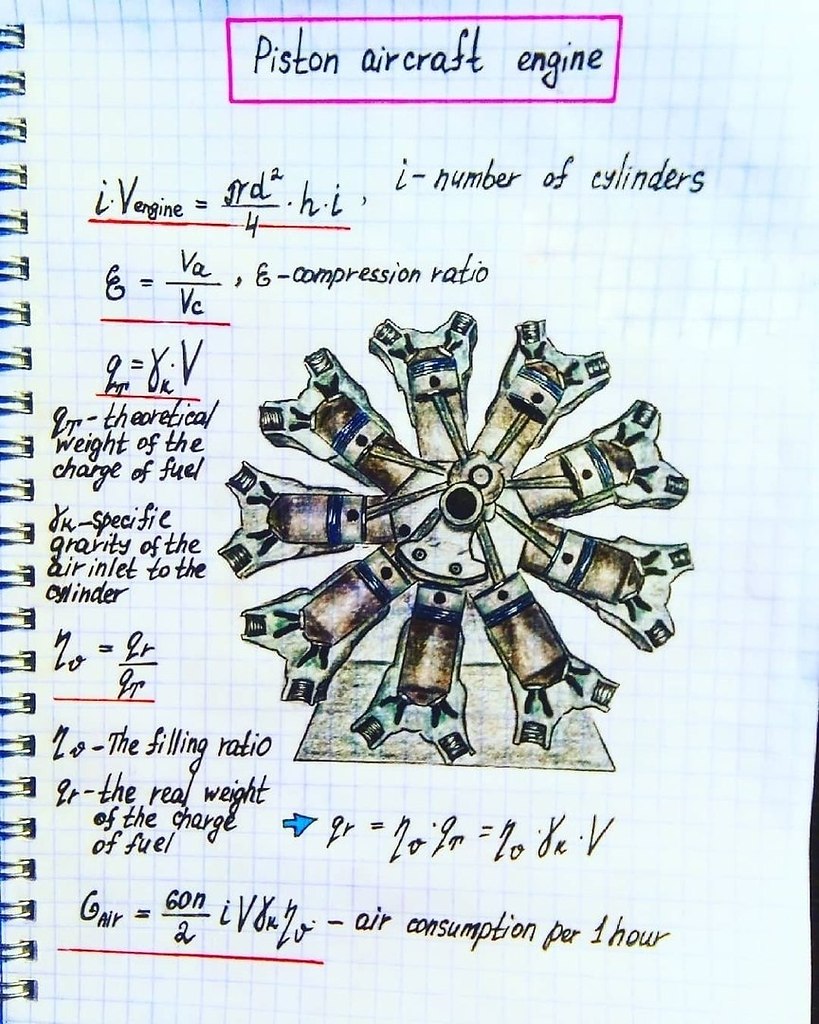 Piston aircraft engine
i·Vengine = πd²/4 · h · i, i - number of cylinders
ε = Va/Vc, ε - compression ratio
qт = γk·V
qт - theoretical
weight of the
charge of fuel
γk - specific
grarity of the
air inlet to the
cylinder
ηv = qr/qт
ηv - The filling ratio
qr - the real weight
of the charge
of fuel
qr = ηv·qт = ηv·γk·V
GAir = 60n/2 i V γk ηv - air consumption per 1 hour